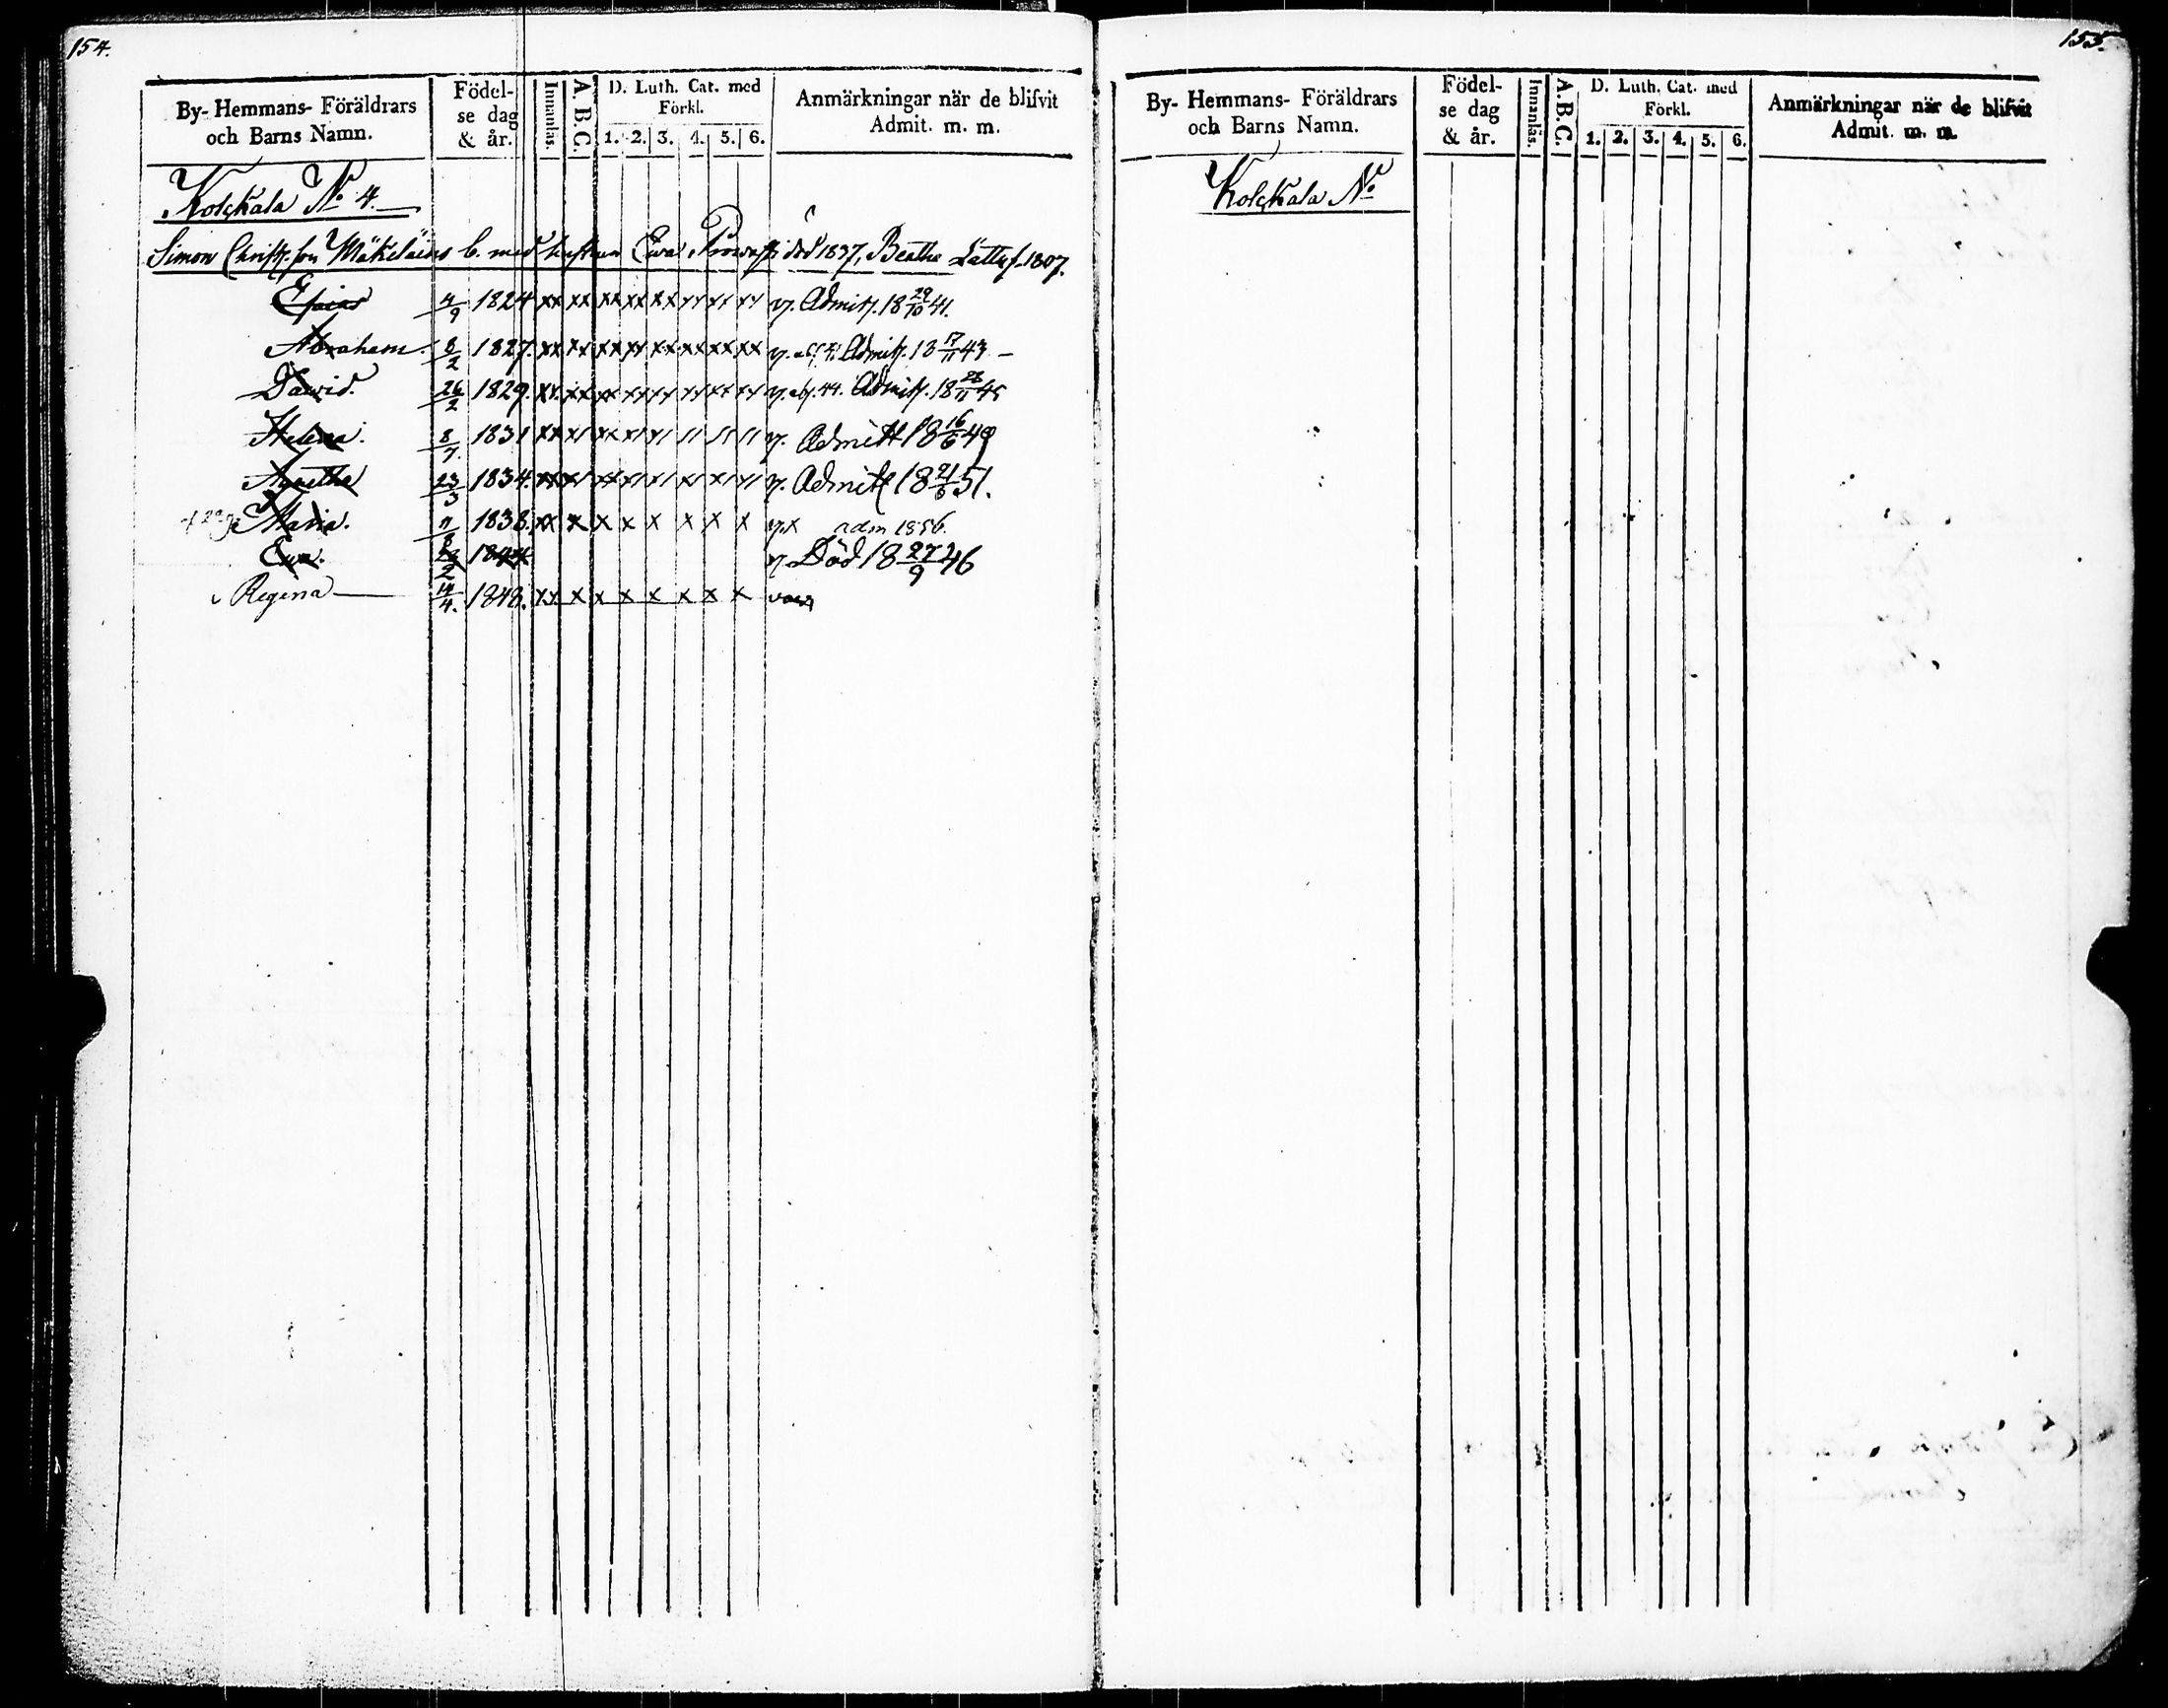 154.
By- Hemmans- Föräldrars
och Barns Namn.
Födel-
se dag
& år.
Innanläs.
A. B. C.
D. Luth. Cat. med
Förkl.
1. 2. 3. 4. 5. 6.
Anmärkningar när de blifvit
Admit. m. m.
Kolckala No 4.
Simon Mäkeläins b. med hustrun Ewa död 1837, Beatha f. 1807.
Esaias 4/9 1824 xx xx xx xx xx xx xx xx v. Admitt. 18 29/10 41.
Abraham. 8/2 1827. xx xx xx xx xx xx xx xx v. Admitt. 18 17/11 43
David. 26/2 1829. xx xx xx xx xx xx xx xx v. abs. 44. Admitt. 18 45
Helena. 8/7. 1831 v. Admitt 18 16/6 49
Agnetha 23/3 1834. v. Admitt 18 51.
Maria. 11/8 1838. xx x x x x x x x v. x adm 1856.
Ewa. 1844 v. Död 18 27/9 46
Regina 14/4. 1848. xx x x x x x x x
155.
By- Hemmans- Föräldrars
och Barns Namn.
Födel-
se dag
& år.
Innanläs.
A. B. C.
D. Luth. Cat. med
Förkl.
1. 2. 3. 4. 5. 6.
Anmärkningar när de blifvit
Admit. m. m.
Kolckala No